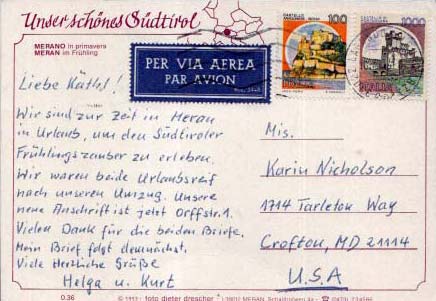 Unser schönes Südtirol
MERANO in primavera
MERAN im Frühling
PER VIA AEREA
PAR AVION
100
1000
ITALIA
Liebe Käthi!
Wir sind zur Zeit in Meran
in Urlaub, um den Südtiroler
Frühlingszauber zu erleben.
Wir waren beide Urlaubsreif
nach unserem Umzug. Unsere
neue Anschrift ist jetzt Orffstr. 1.
Vielen Dank für die beiden Briefe.
Mein Brief folgt demnächst.
Viele Herzliche Grüße
Helga u. Kurt
Mis.
Karin Nicholson
1714 Tarleton Way
Crofton, MD 21114
U.S.A
0.36
foto dieter drescher